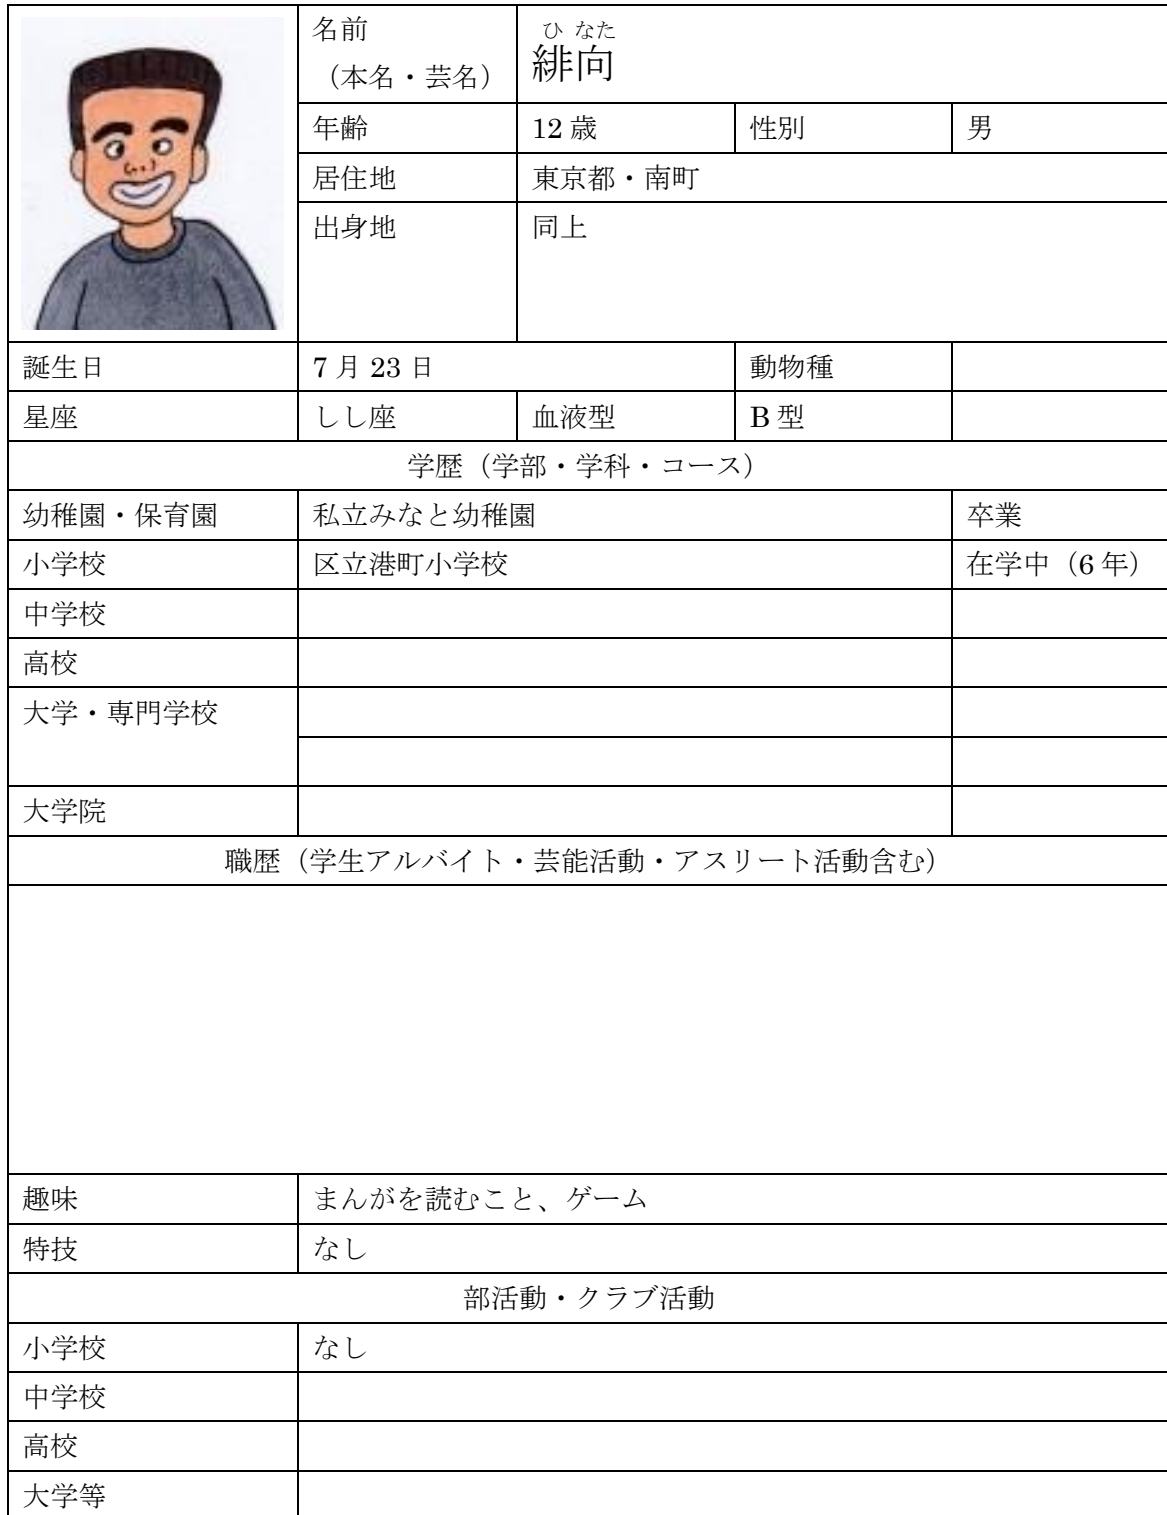 名前
（本名・芸名）
ひ なた
緋向
年齢 12歳 性別 男
居住地 東京都・南町
出身地 同上
誕生日 7月23日 動物種
星座 しし座 血液型 B型
学歴（学部・学科・コース）
幼稚園・保育園 私立みなと幼稚園 卒業
小学校 区立港町小学校 在学中（6年）
中学校
高校
大学・専門学校
大学院
職歴（学生アルバイト・芸能活動・アスリート活動含む）
趣味 まんがを読むこと、ゲーム
特技 なし
部活動・クラブ活動
小学校 なし
中学校
高校
大学等